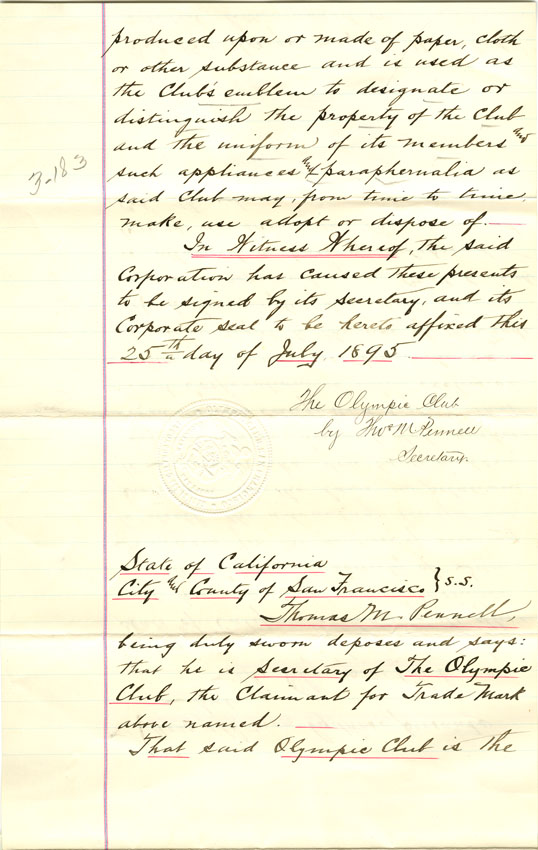 produced upon or made of paper, cloth
or other substance and is used as
the Club's emblem to designate or
distinguish the property of the Club
and the uniform of its members and
such appliances and & paraphernalia as
said Club may, from time to time,
make, use adopt or dispose of.
3-183
In Witness Whereof, the said
Corporation has caused these presents
to be signed by its secretary, and its
Corporate seal to be hereto affixed this
25th day of July 1895
The Olympic Club
by Thos M Pennell
Secretary.
State of California
City and County of San Francisco } S.S.
Thomas M. Pennell,
being duly sworn deposes and says:
that he is Secretary of The Olympic
Club, the Claimant for Trade Mark
above named.
That said Olympic Club is the